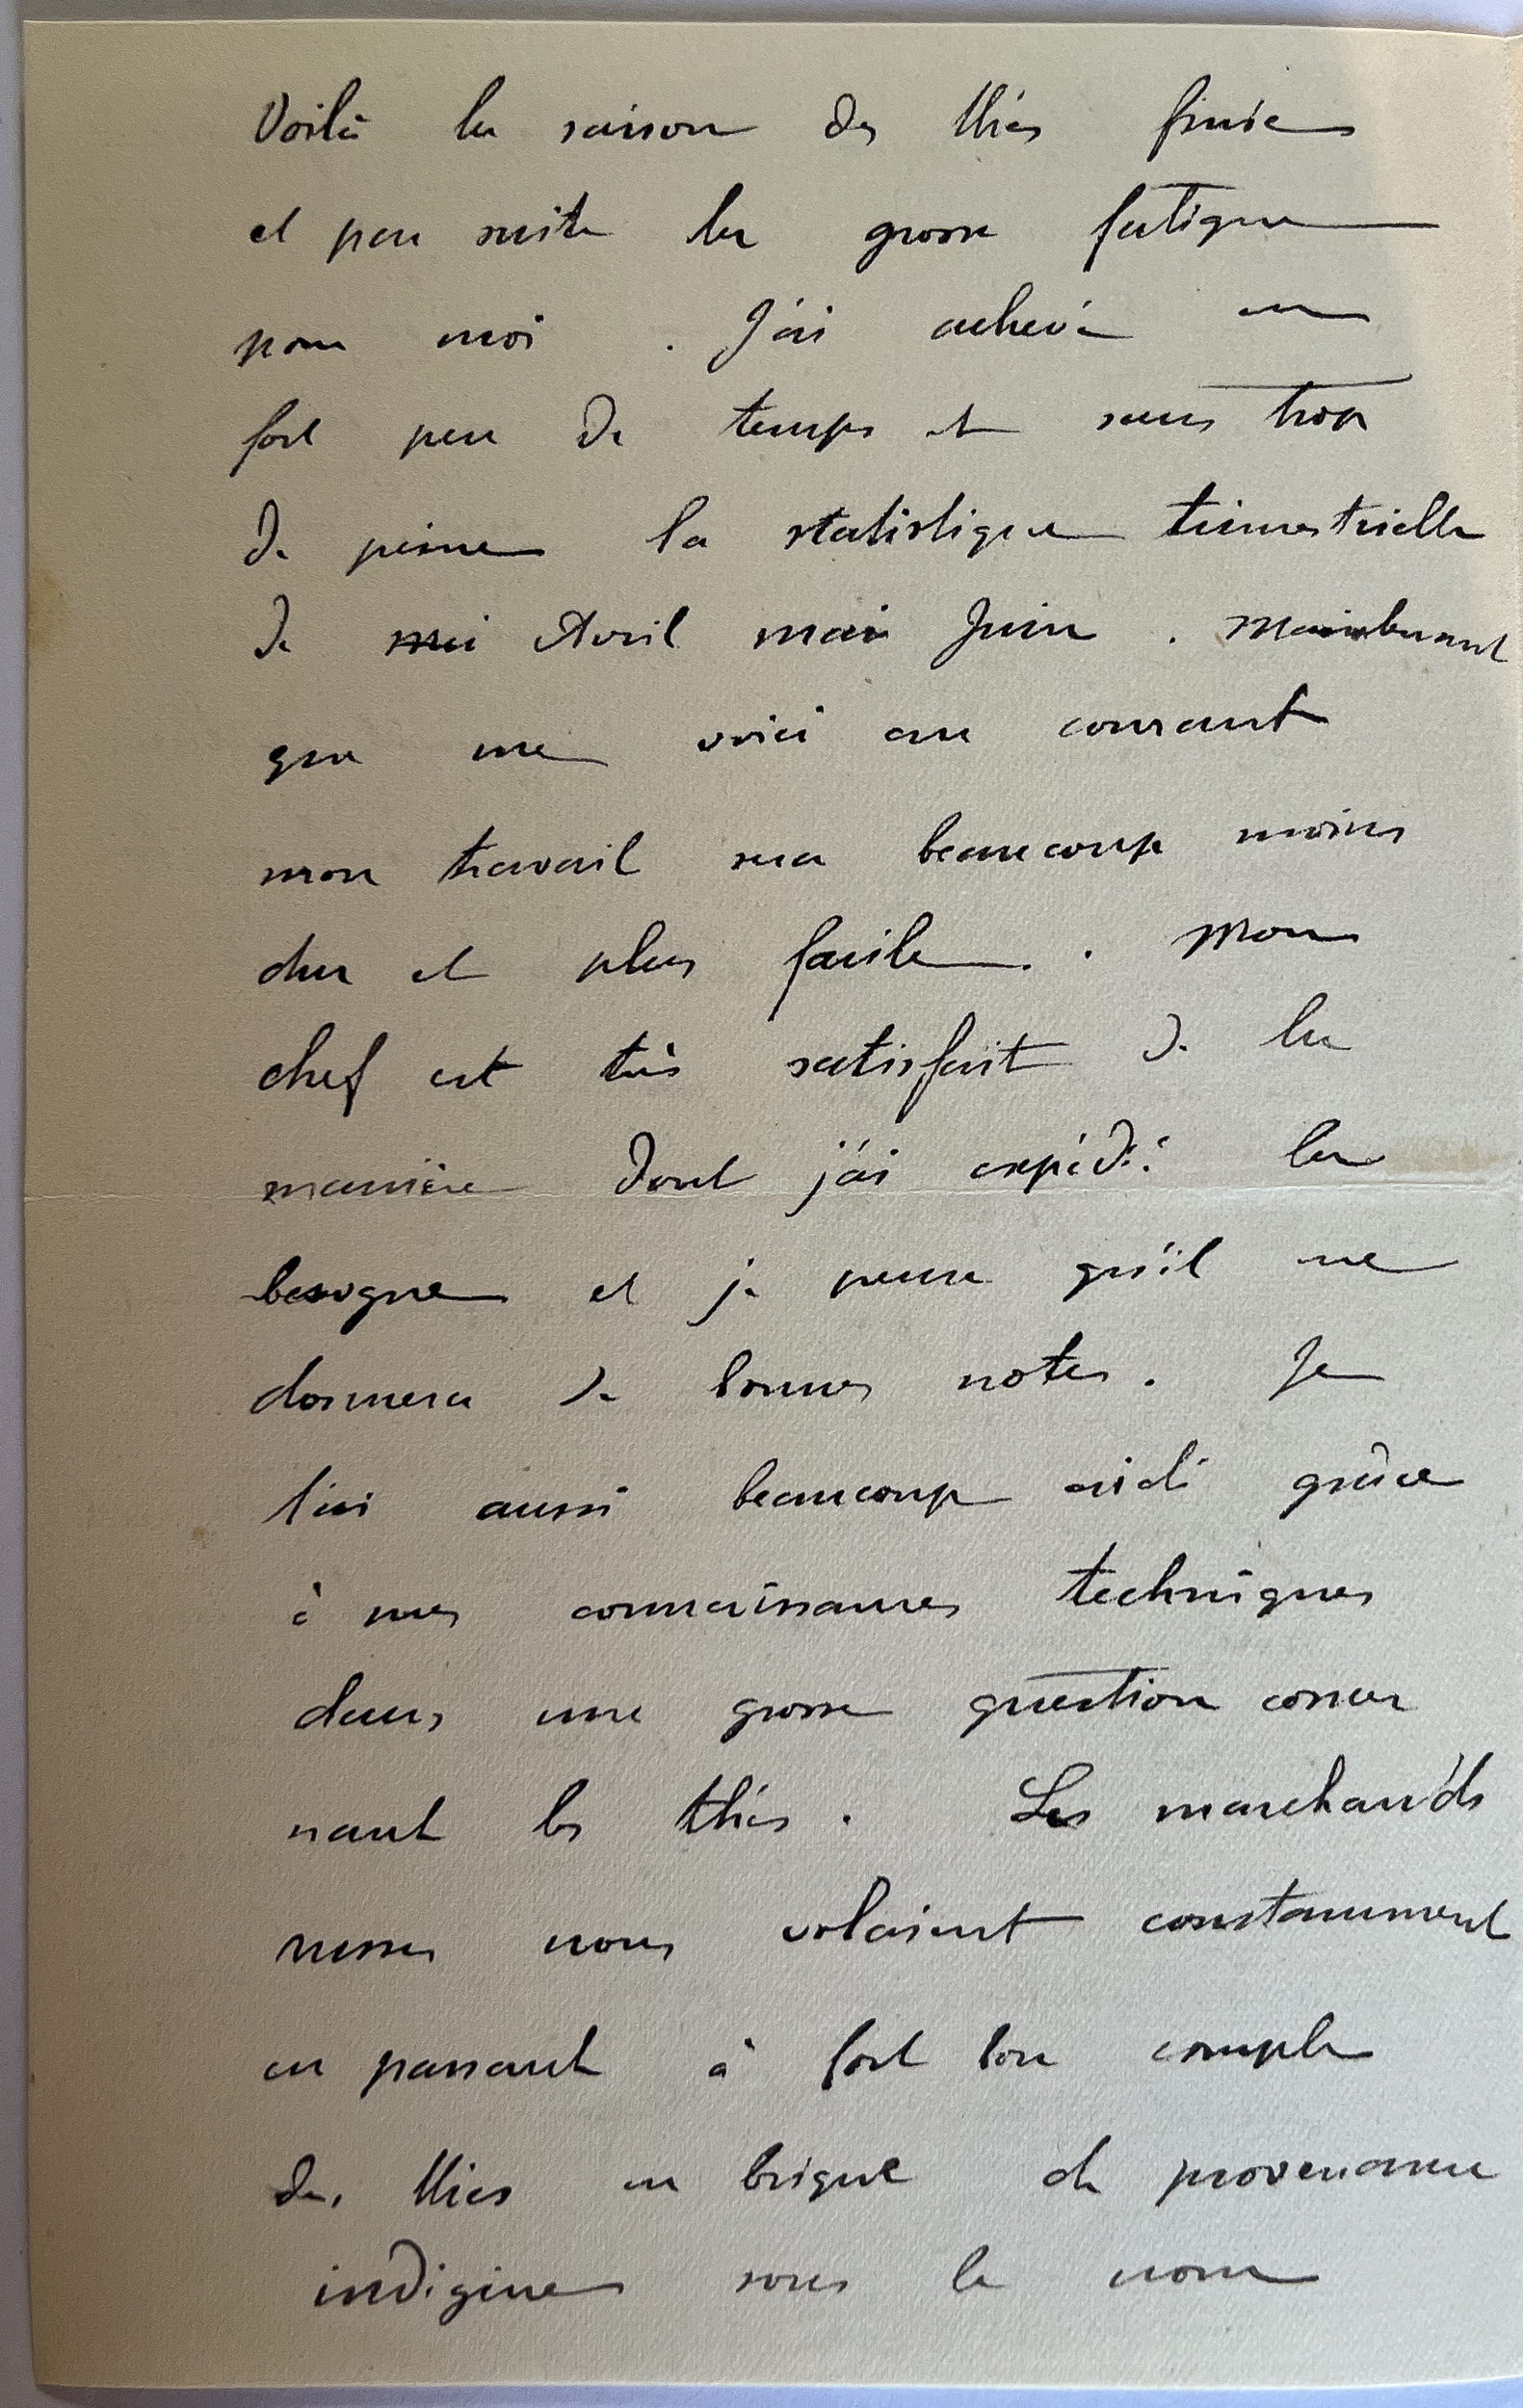 Voilà la saison des thés finie
et par suite la grosse fatigue
pour moi . J'ai achevé en
fort peu de temps et sans trop
de peine la statistique trimestrielle
de mai Avril mai Juin . Maintenant
que me voici au courant
mon travail sera beaucoup moins
dur et plus facile . Mon
chef est très satisfait de la
manière dont j'ai expédié la
besogne et je pense qu'il me
donnera de bonnes notes . Je
l'ai aussi beaucoup aidé grâce
à mes connaissances techniques
dans une grosse question concer
nant les thés . Les marchands
russes nous volaient constamment
en passant à fort bon compte
des thés en brique de provenance
indigène sous le nom